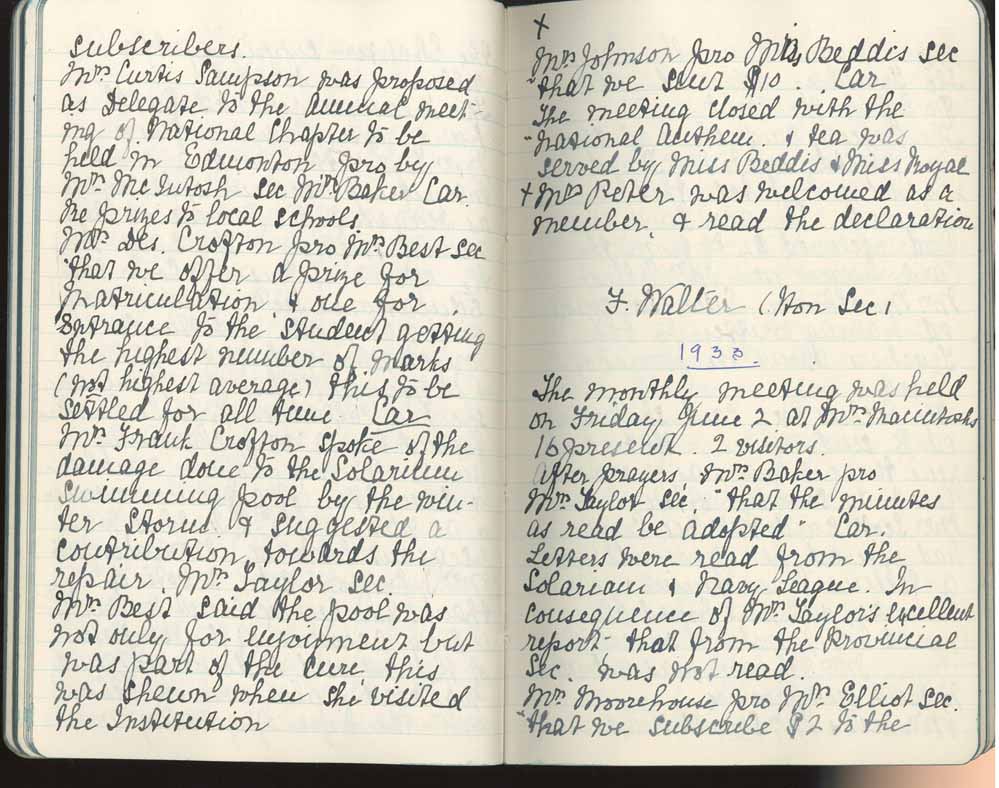 subscribers.
Mrs Curtis Sampson was proposed
as Delegate to the annual meet-
ing of National Chapter to be
held in Edmonton pro by
Mrs McIntosh sec Mrs Baker Car.
re prizes to local schools.
Mrs Des. Crofton pro Mrs Best sec
"that we offer a prize for
Matriculation & one for
Entrance to the student getting
the highest number of marks
(not highest average) this to be
settled for all time Car
Mrs Frank Crofton spoke of the
damage done to the Solarium
swimming pool by the win-
ter storms & suggested a
contribution towards the
repair Mrs Taylor sec.
Mrs Best said the pool was
not only for enjoyment but
was part of the cure, this
was shewn when she visited
the Institution
x
Mrs Johnson pro Beddis sec
"that we sent $10. Car
The meeting closed with the
"National Anthem. & tea was
served by Miss Beddis & Miss Royal
+ Mrs Peter was welcomed as a
member, & read the declaration
F. Walter (Hon Sec)
1933.
The monthly meeting was held
on Friday June 2 at Mrs Macintoshs
16 present. 2 visitors.
After prayers, Mrs Baker pro
Mrs Taylor sec. "that the minutes
as read be adopted" Car.
Letters were read from the
Solarium & Navy League. In
consequence of Mrs Taylor's excellent
report that from the Provincial
Sec. was not read.
Mrs Moorehouse pro Mrs Elliot sec.
"that we subscribe $2 to the